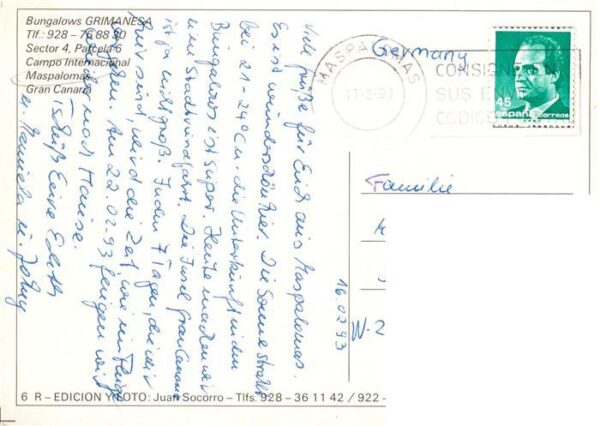 Bungalows GRIMANESA
Tlf.: 928 - 76 88 50
Sector 4, Parcela 6
Campo Internacional
Maspalomas
Gran Canaria
Viele Grüße für Euch aus Maspalomas.
Es ist wunderschön hier. Die Sonne strahlt
bei 21-24°C u. die Unterkunft in den
Bungalows ist super. Heute machen wir
eine Stadtrundfahrt. Die Insel Gran Canaria
ist ja nicht groß. In den 7 Tagen, die wir
hier sind, wird die Zeit wie im Fluge
vergehen. Am 22.02.93 fliegen wir
wieder nach Hause.
Tschüß Eure Edith
u. Daniela u. Johny
16.02.93
Germany
MASPALOMAS
13-2-93
CONSIGNE EN
SUS ENV
CODIGO
45
españa correos
Familie
W-2
6 R - EDICION Y FOTO: Juan Socorro - Tlfs. 928 - 36 11 42 / 922 -